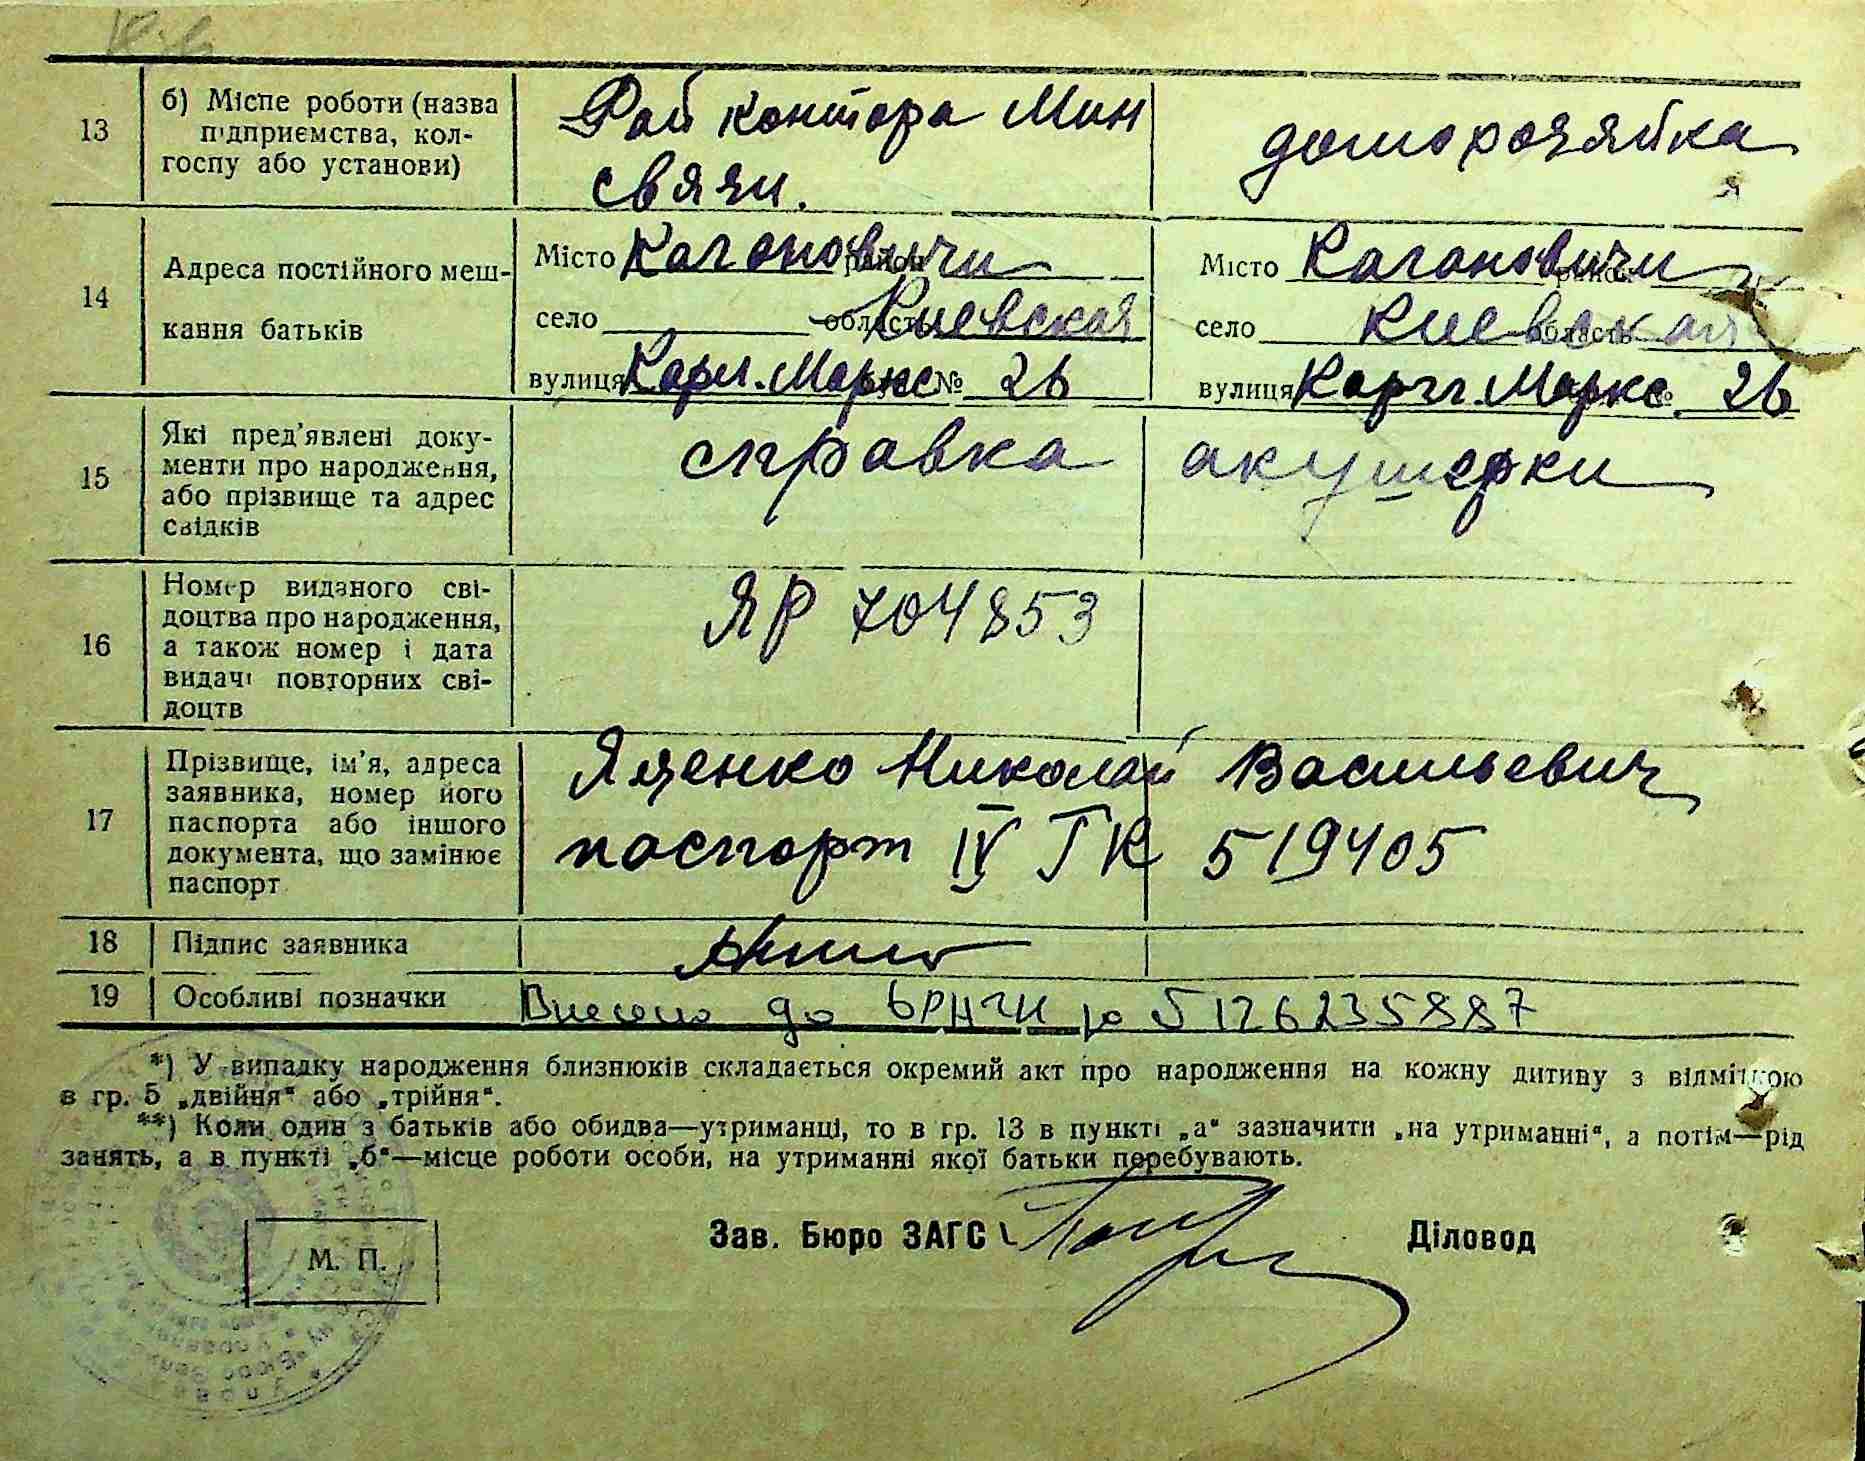 13
б) Місце роботи (назва підприємства, кол-
госпу або установи)
Рай контора Мин
связи.
доморозяйка
14
Адреса постійного меш-
кання батьків
Місто Кагановичи район
село область Киевская
вулиця Карл. Маркс № 26
Місто Кагановичи район
село область Киевская
вулиця Карл. Маркс № 26
15
Які пред'явлені доку-
менти про народження,
або прізвище та адрес
свідків
справка акушерки
16
Номер виданого сві-
доцтва про народження,
а також номер і дата
видачі повторних сві-
доцтв
ЯР 704853
17
Прізвище, ім'я, адреса
заявника, номер його
паспорта або іншого
документа, що замінює
паспорт
Яценко Николай Васильевич
паспорт IV ГК 519405
18
Підпис заявника
19
Особливі позначки
Внесено до 5126235887
*) У випадку народження близнюків складається окремий акт про народження на кожну дитину з відміткою
в гр. 5 „двійня“ або „трійня“.
**) Коли один з батьків або обидва—утриманці, то в гр. 13 в пункті „а“ зазначити „на утриманні“, а потім—рід
занять, а в пункті „б“—місце роботи особи, на утриманні якої батьки перебувають.
М. П.
Зав. Бюро ЗАГС
Діловод